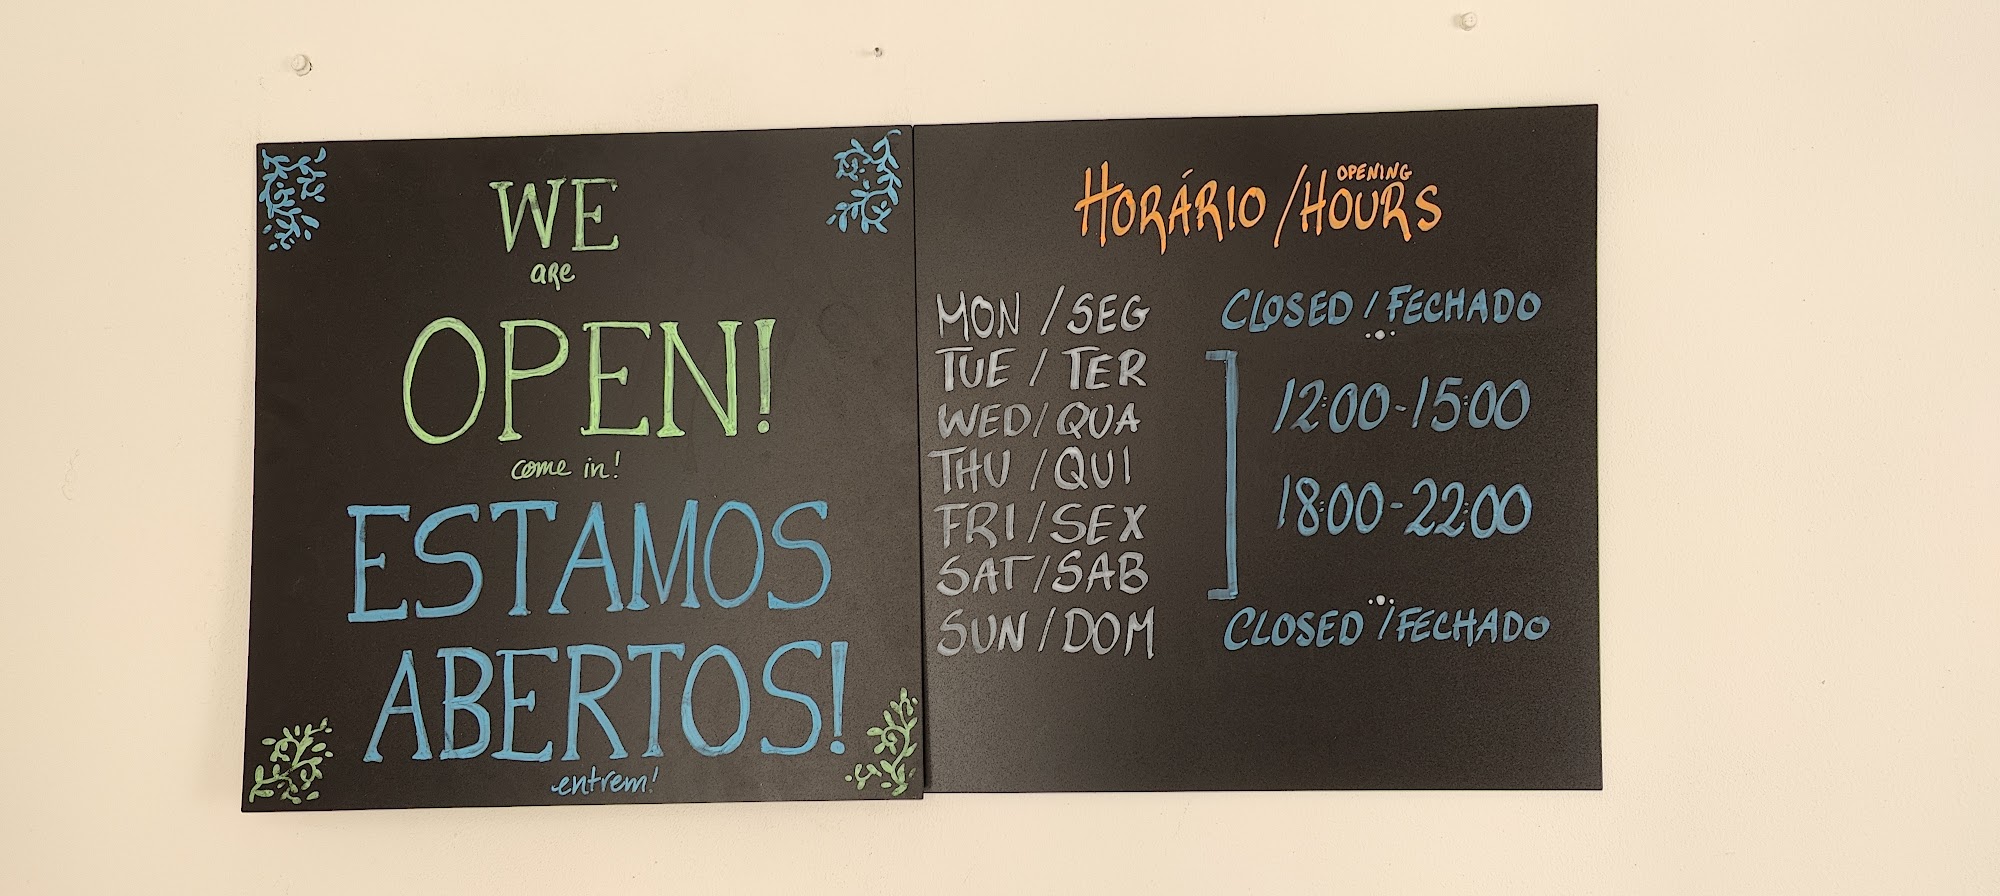 WE
are
OPEN!
come in!
ESTAMOS
ABERTOS!
entrem!
HORÁRIO / OPENING HOURS
MON / SEG CLOSED / FECHADO
TUE / TER
WED / QUA 12:00-15:00
THU / QUI
FRI / SEX 18:00-22:00
SAT / SAB
SUN / DOM CLOSED / FECHADO